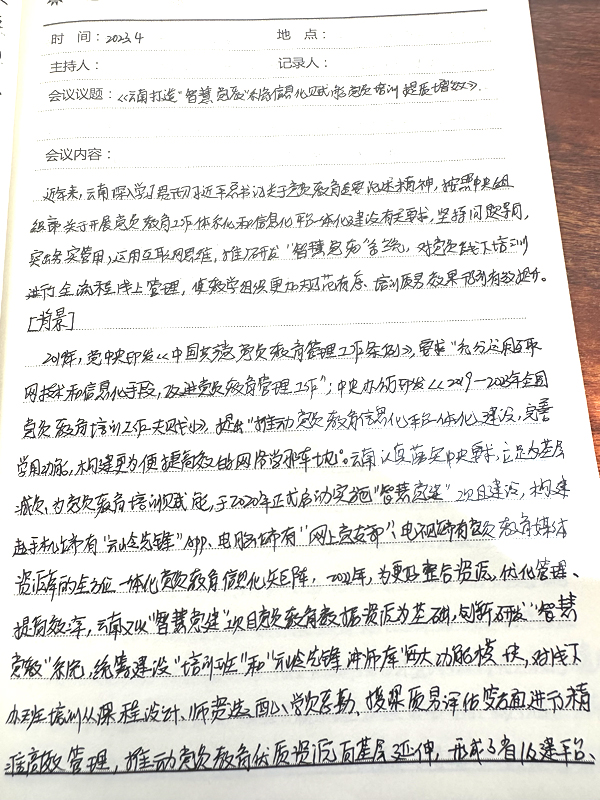 时 间：2023.4 地 点：
主持人： 记录人：
会议议题：《云南打造“智慧党教”系统信息化赋能党员培训提质增效》.
会议内容：
近年来，云南深入学习贯彻习近平总书记关于党员教育重要论述精神，按照中央组
组部关于开展党员教育工作体系化和信息化平台一体化建设有关要求，坚持问题导向，
突出务实管用，运用互联网思维，推广研发“智慧党教”系统，对党员线下培训
进行全流程线上管理，使教学组织更加规范有序、培训质量效果得到有效提升。
[背景]
2019年，党中央印发《中国共产党党员教育管理工作条例》，要求“充分运用互联
网技术和信息化手段，改进党员教育管理工作”；中央办公厅印发《2019—2023年全国
党员教育培训工作规划》，提出“推动党员教育信息化平台一体化建设，完善
学用功能，构建更为便捷高效的网络学习阵地”。云南认真落实中央要求，立足为基层
减负、为党员教育培训赋能，于2020年正式启动实施“智慧党建”项目建设，构建
起手机端有“云岭先锋”APP、电脑端有“网上党支部”、电视端有党员教育媒体
资源库的全方位一体化党员教育信息化矩阵，2022年，为更好整合资源，优化管理、
提高效率，云南又以“智慧党建”项目党员教育数据资源为基础，创新研发“智慧
党教”系统，统筹建设“培训班”和“云岭先锋讲师库”两大功能模块，对线下
办班培训从课程设计、师资选配、学员考勤、授课质量评估等方面进行精
准高效管理，推动党员教育优质资源向基层延伸，形成了省级建平台、